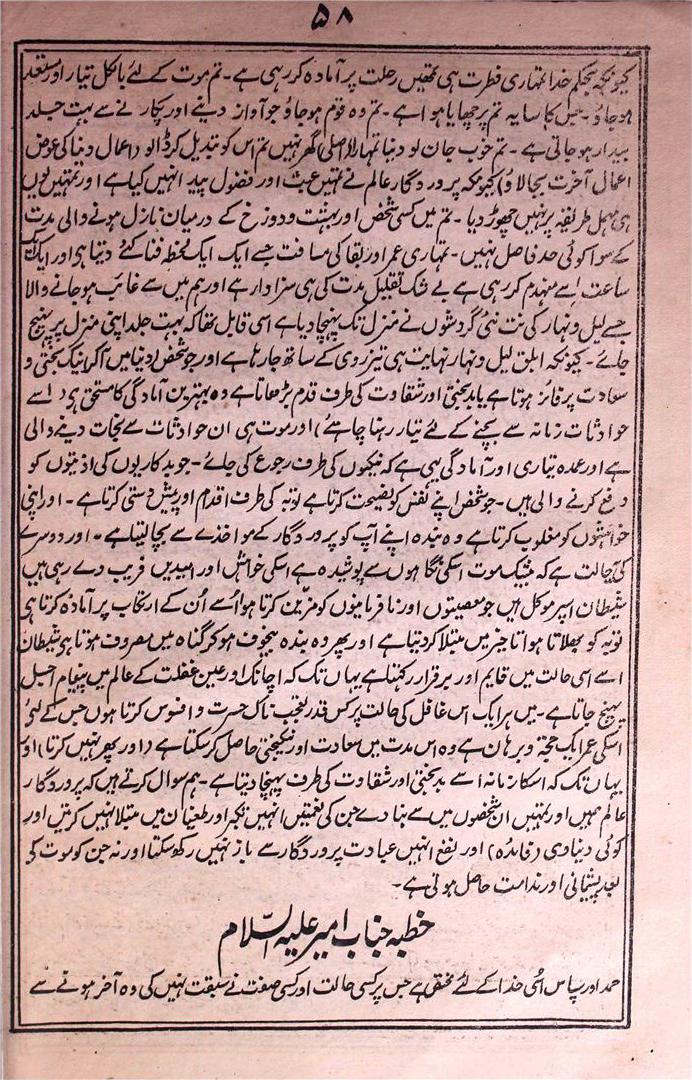 ۵۸
کیونکہ بحکم خدا تمہاری فطرت ہی تمھیں رحلت پر آمادہ کر رہی ہے۔ تم موت کے لئے بالکل تیار اور مستعد
ہو جاؤ۔ جس کا سایہ تم پر چھایا ہوا ہے۔ تم وہ قوم ہو جاؤ جو آواز دینے اور پکارنے سے بہت جلد
بیدار ہو جاتی ہے۔ تم خوب جان لو دنیا تمہارا اصلی گھر نہیں تم اس کو تبدیل کر ڈالو (اعمال دنیا کی عوض
اعمال آخرت بجا لاؤ) کیونکہ پروردگار عالم نے تمہیں عبث اور فضول پیدا نہیں کیا ہے اور تمہیں یوں
ہی مہمل طریقہ پر نہیں چھوڑ دیا۔ تم میں کسی شخص اور بہشت و دوزخ کے درمیان نازل ہونے والی مدت
کے سوا کوئی حد فاصل نہیں۔ تمہاری عمر اور بقا کی مسافت جسے ایک ایک لحظہ فنا کئے دیتا ہی اور ایک ایک
ساعت اسے منہدم کر رہی ہے بے شک تقلیل مدت کی ہی سزاوار ہے اور ہم میں سے غائب ہو جانے والا
جسے لیل و نہار کی نت نئی گردشوں نے منزل تک پہنچا دیا ہے اسی قابل تھا کہ بہت جلد اپنی منزل پر پہنچ
جائے۔ کیونکہ ابلق لیل و نہار نہایت ہی تیز روی کے ساتھ جا رہا ہے اور جو شخص (دنیا میں آکر) نیک بختی و
سعادت پر فائز ہوتا ہے یا بدبختی اور شقاوت کی طرف قدم بڑھاتا ہے وہ بہترین آمادگی کا مستحق ہی (اسے
حوادثات زمانہ سے بچنے کے لئے تیار رہنا چاہئے) اور موت ہی ان حوادثات سے نجات دینے والی
ہے اور عمدہ تیاری اور آمادگی یہی ہے کہ نیکوں کی طرف رجوع کی جائے۔ جو بدکاریوں کی اذیتوں کو
دفع کرنے والی ہیں۔ جو شخص اپنے نفس کو نصیحت کرتا ہے توبہ کی طرف اقدام اور پیش دستی کرتا ہے۔ اور اپنی
خواہشوں کو مغلوب کرتا ہے وہ بندہ اپنے آپ کو پروردگار کے مواخذے سے بچا لیتا ہے۔ اور دوسرے
کی یہ حالت ہے کہ بیشک موت اسکی نگاہوں سے پوشیدہ ہے اسکی خواہش اور امیدیں فریب دے رہی ہیں
شیطان اسپر موکل ہیں جو معصیتوں اور نافرمانیوں کو مزین کرتا ہوا اسے اُن کے ارتکاب پر آمادہ کرتا ہی
توبہ کو بھلاتا ہوا تاخیر میں مبتلا کر دیتا ہے اور پھر وہ بندہ بیخوف ہو کر گناہ میں مصروف ہوتا ہی شیطان
اسے اسی حالت میں قایم اور برقرار رکھتا ہے یہاں تک کہ اچانک اور عین غفلت کے عالم میں پیغام اجل
پہنچ جاتا ہے۔ میں ہر ایک اس غافل کی حالت پر کس قدر تعجب ناک حسرت و افسوس کرتا ہوں جس کے لئے
اسکی عمر ایک حجۃ و برہان ہے وہ اس مدت میں سعادت اور نیکبختی حاصل کر سکتا ہے (اور پھر نہیں کرتا) اور
یہاں تک کہ اسکا زمانہ اسے بدبختی اور شقاوت کی طرف پہنچا دیتا ہے۔ ہم سوال کرتے ہیں کہ پروردگار
عالم ہمیں اور تمہیں ان شخصوں میں سے بنا دے جن کی نعمتیں انہیں تکبر اور طغیان میں مبتلا نہیں کرتیں اور
کوئی دنیاوی (فائدہ) اور نفع انہیں عبادت پروردگار سے باز نہیں رکھ سکتا اور نہ جن کو موت کے
بعد پشیمانی اور ندامت حاصل ہوتی ہے۔
خطبہ جناب امیر علیہ السّلام
حمد اور سپاس اُسی خدا کے لئے مختص ہے جس پر کسی حالت اور کسی صفت نے سبقت نہیں کی وہ آخر ہونے سے